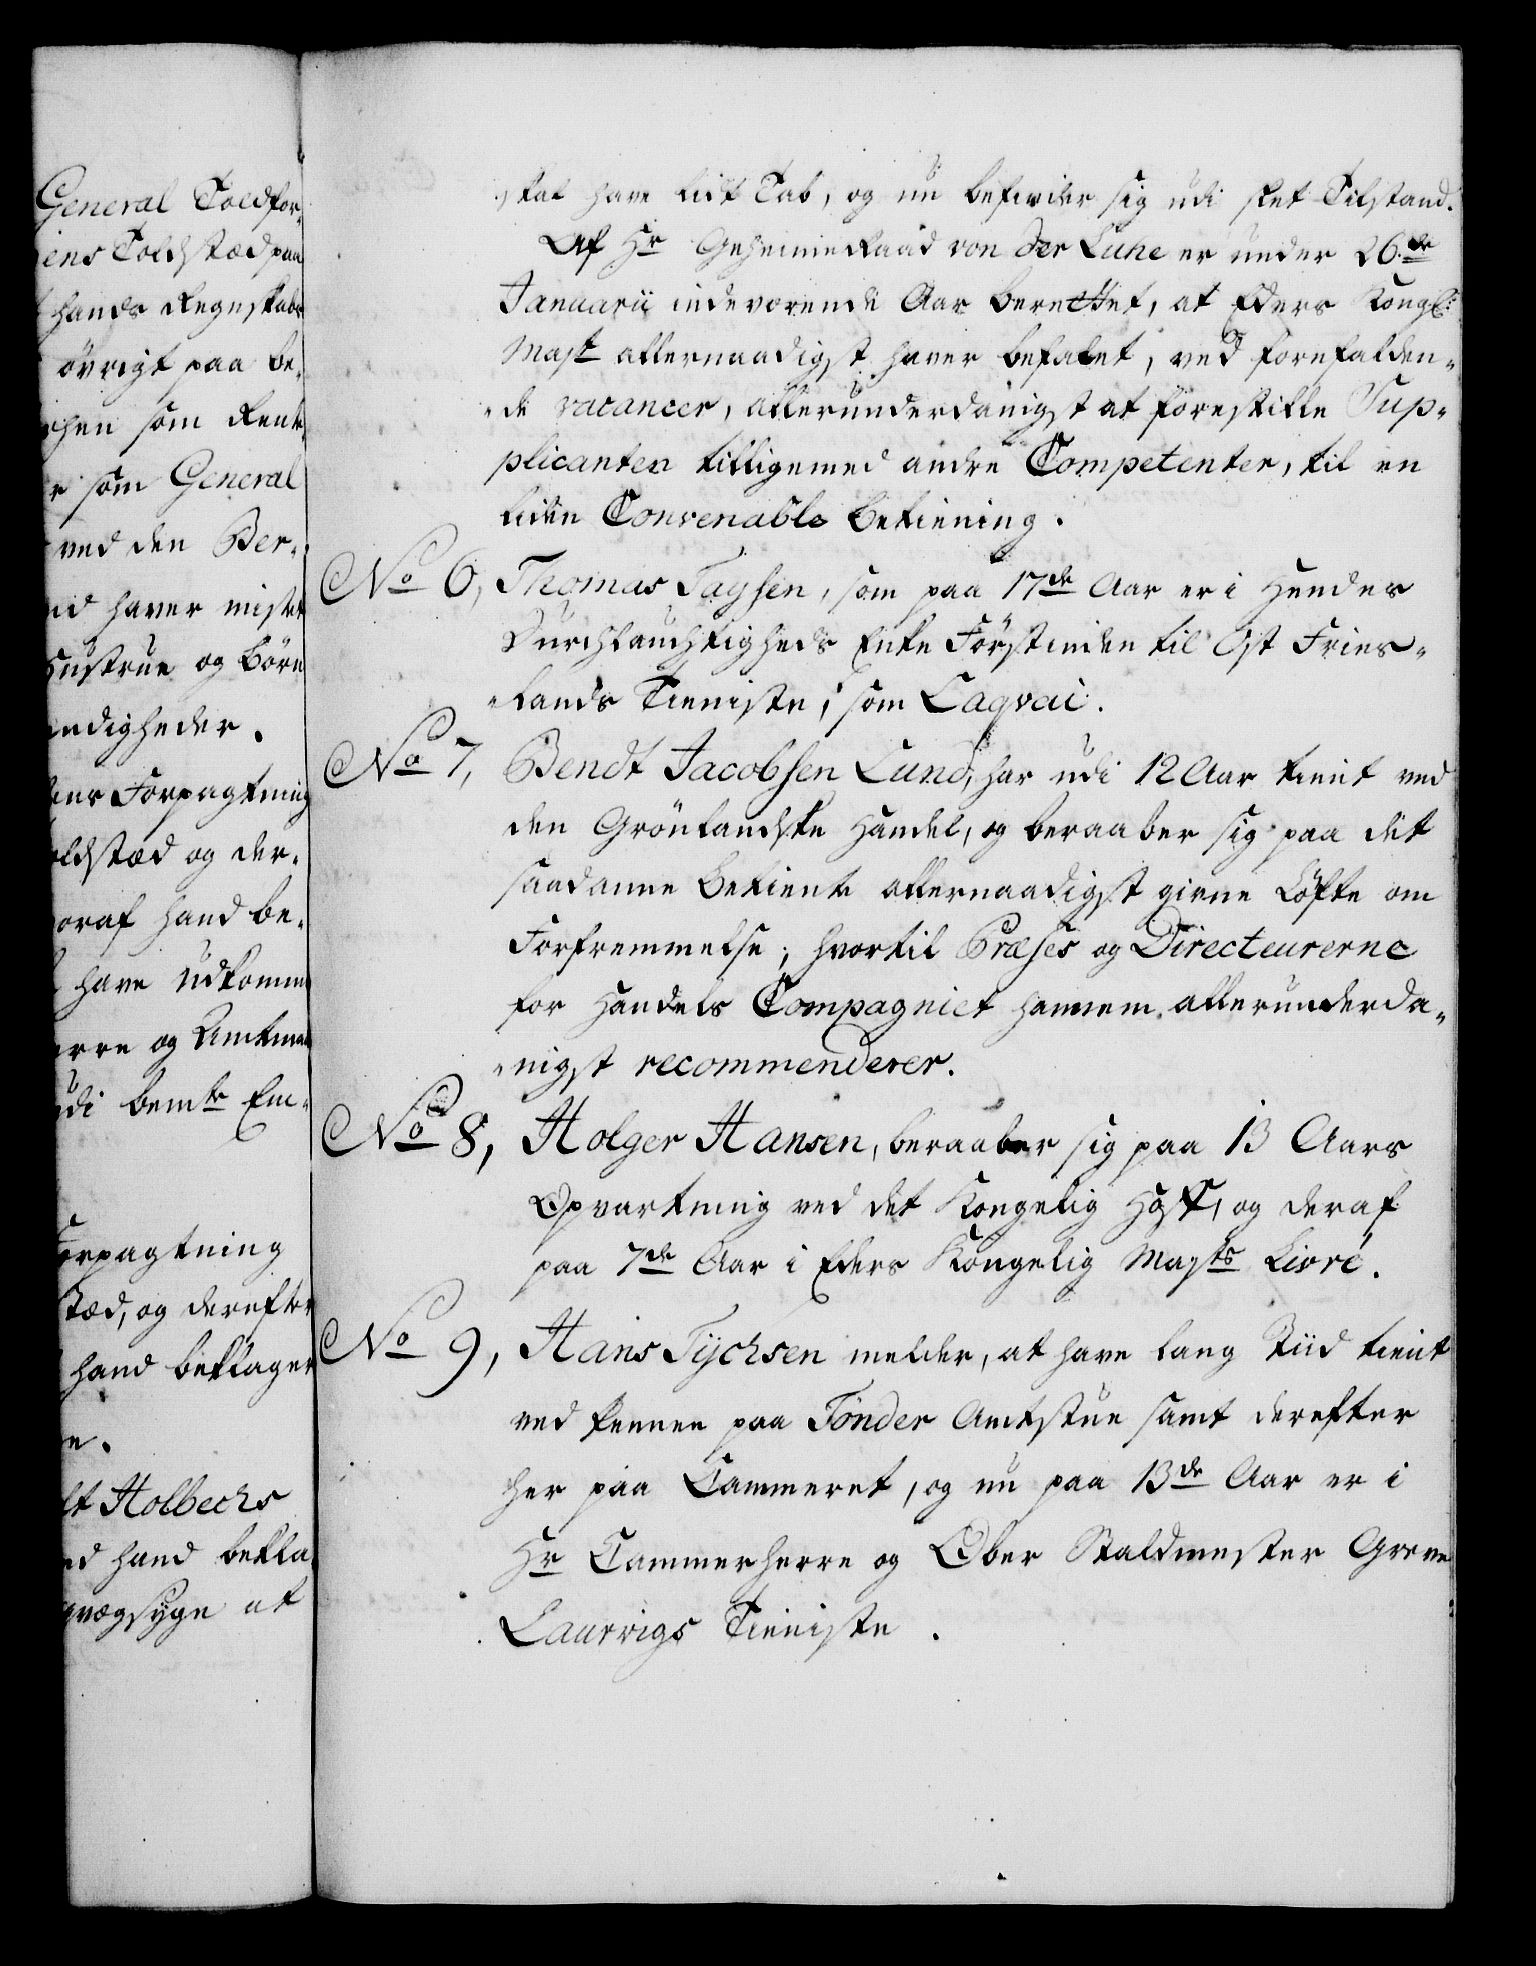 General Toldfor-
iens Toldstæd paa
hands Regnskabs
övrigt paa be-
som Rente-
som General
ved den Ber-
haver mistet
Hustrue og Börn
digheder.
Forpagtning
oldstæd og der-
oraf hand be-
have Udkomme
og Amtmand
udi bemte Em-
Forpagtning
stæd, og derefter
hand beklager
Holbechs
hand bekla-
qvægsyge at
skal have lidt Tab, og nu befinder sig udi slet Tilstand.
Af Hr GeheimeRaad von der Luhe er under 26de
Januarii indeværende Aar berettet, at Eders Kongl:
Mayt allernaadigst haver befalet, ved forefalden-
-de vacancer, allerunderdanigst at forestille Sup-
plicanten tilligemed andre Competenter, til en
liden Convenable Betiening.
No 6, Thomas Taysen, som paa 17de Aar er i Hendes
Durchlauchtigheds Enke Förstinden til Ost Fries-
-lands Tieniste, som Laqvai.
No 7, Bendt Jacobsen Lund, har udi 12 Aar tient ved
den Grönlandske Handel, og beraaber sig paa det
saadanne Betiente allernaadigst givne Löfte om
Forfremmelse; hvortil Præses og Directeurerne
for Handels Compagniet hannem allerunderda-
-nigst recommenderer.
No 8, Holger Hansen, beraaber sig paa 13 Aars
Opvartning ved det Kongelig Hoff, og deraf
paa 7de Aar i Eders Kongelig Mayts Livré.
No 9, Hans Tychsen melder, at have lang Tiid tient
ved Pennen paa Tönder Amtstue samt derefter
her paa Cammeret, og nu paa 13de Aar er i
Hr Cammerherre og Ober Staldmester Greve
Laurvigs Tieniste.